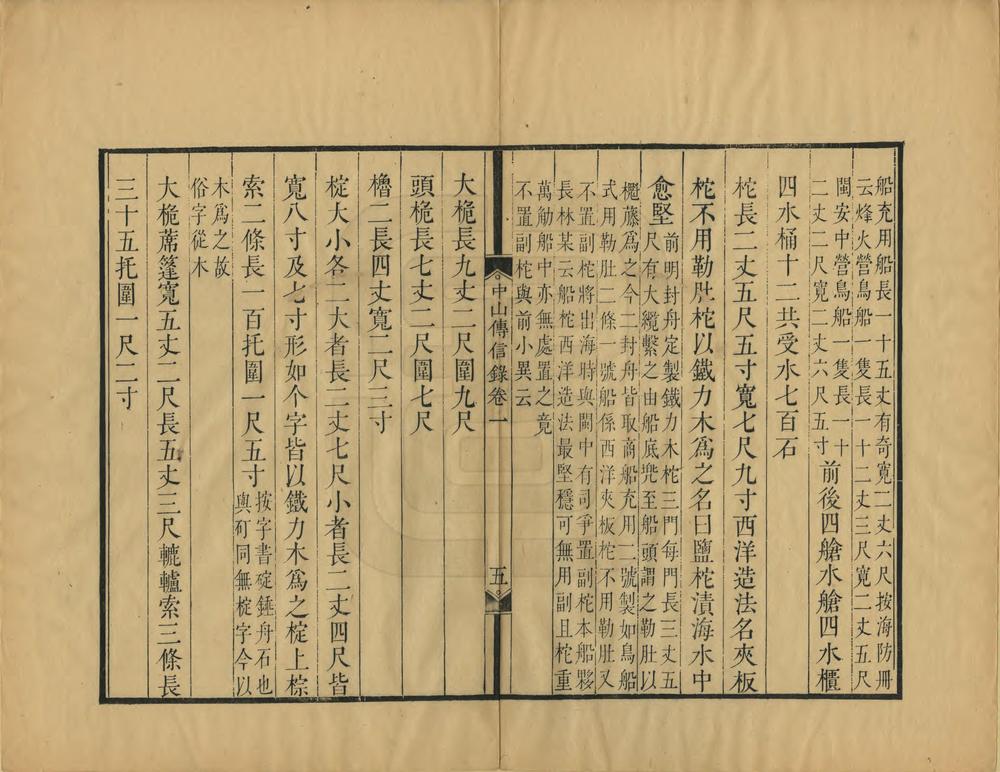 船充用船長一十五丈有奇寬二丈六尺按海防冊
云烽火營鳥船一隻長一十二丈三尺寬二丈五尺
閩安中營鳥船一隻長一十
二丈二尺寬二丈六尺五寸前後四艙水艙四水櫃
四水桶十二共受水七百石
柁長二丈五尺五寸寬七尺九寸西洋造法名夾板
柁不用勒肚柁以鐵力木爲之名曰鹽柁漬海水中
愈堅前明封舟定製鐵力木柁三門每門長三丈五
尺有大纜繫之由船底兠至船頭謂之勒肚以
櫪藤爲之今二封舟皆取商船充用二號製如鳥船
式用勒肚二條一號船係西洋夾板柁不用勒肚又
不置副柁將出海時與閩中有司爭置副柁本船夥
長林某云船柁西洋造法最堅穩可無用副且柁重
萬觔船中亦無處置之竟
不置副柁與前小異云
中山傳信錄卷一
五
大桅長九丈二尺圍九尺
頭桅長七丈二尺圍七尺
櫓二長四丈寬二尺三寸
椗大小各二大者長二丈七尺小者長二丈四尺皆
寬八寸及七寸形如个字皆以鐵力木爲之椗上棕
索二條長一百托圍一尺五寸按字書碇錘舟石也
與矴同無椗字今以
木爲之故
俗字從木
大桅蓆篷寬五丈二尺長五丈三尺轆轤索三條長
三十五托圍一尺二寸